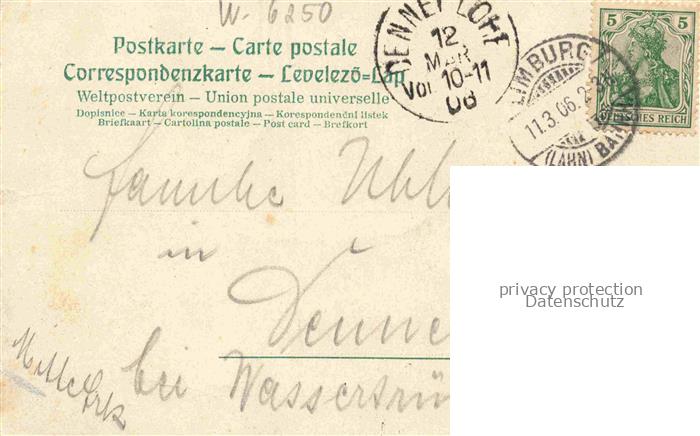 W. 6250
Postkarte – Carte postale
Correspondenzkarte – Levelező-Lap
Weltpostverein – Union postale universelle
Dopisnice – Karta korespondencyjna – Korespondenční listek
Briefkaart – Cartolina postale – Post card – Brefkort
DENNENLOHE
12
MAR
Vor 10-11
06
LIMBURG
11.3.06.2-3
(LAHN) BAHNH
5 5
DEUTSCHES REICH
Familie
in
Denne
bei Wassertrü
privacy protection
Datenschutz